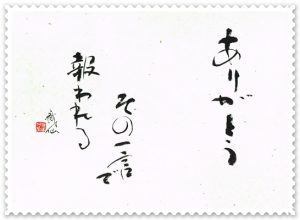 ありがとう
その一言で
報われる